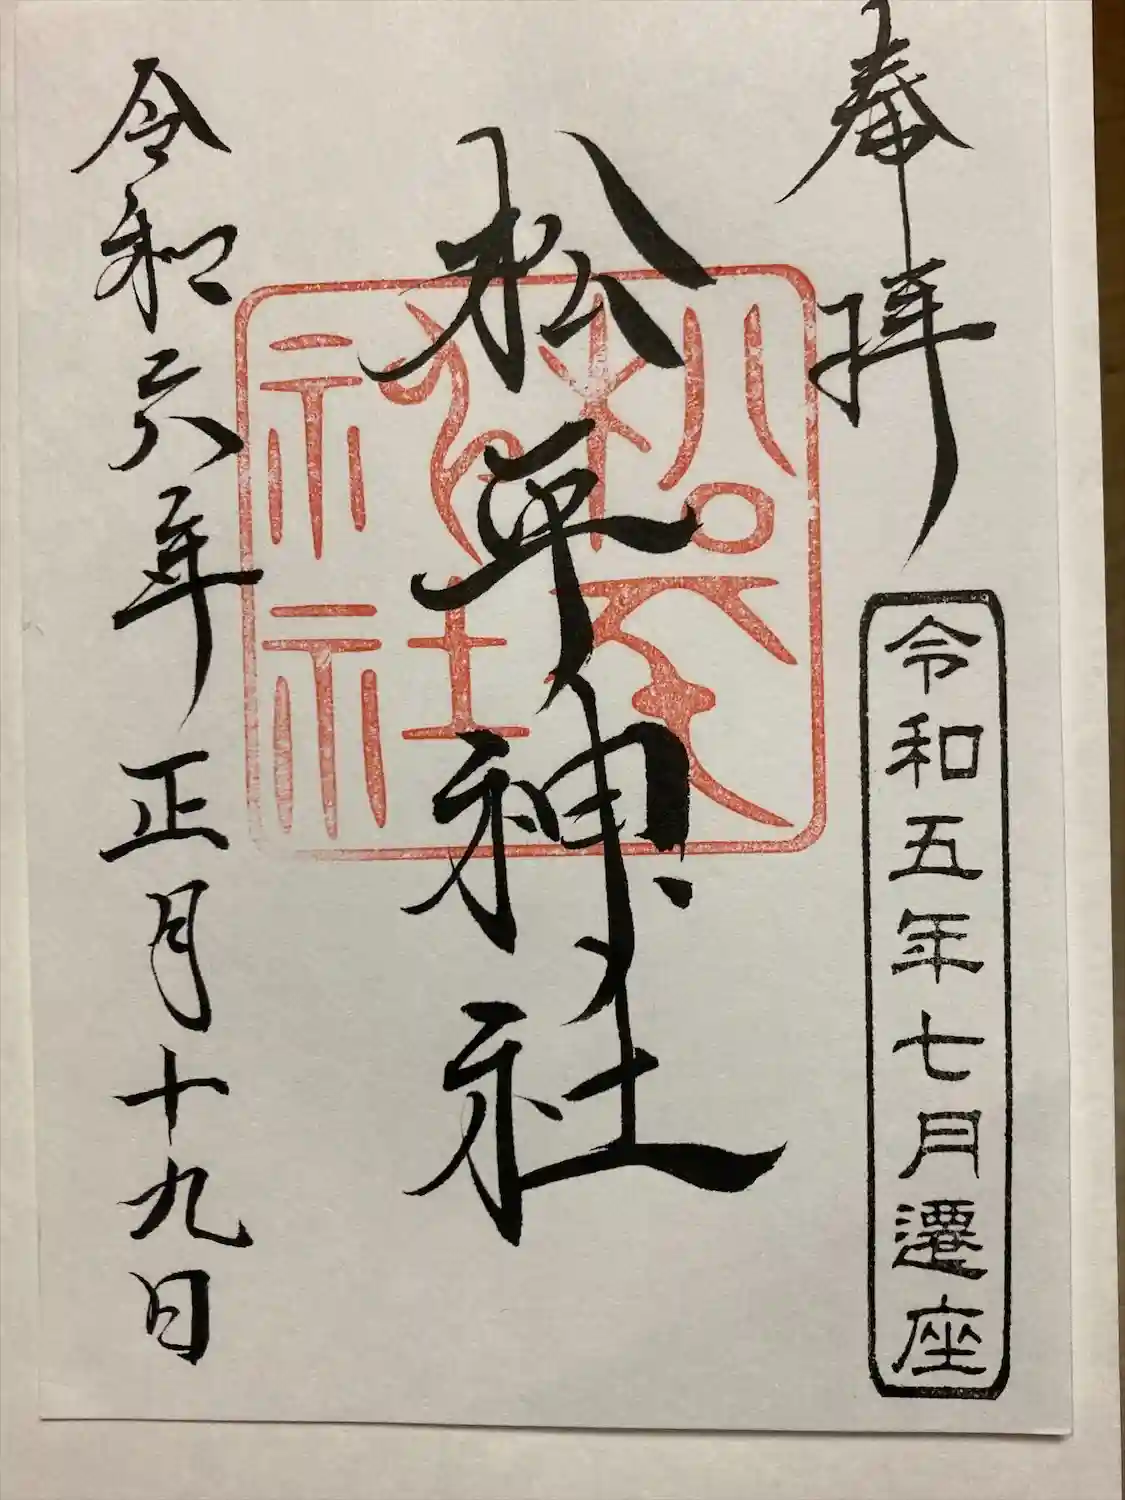 奉拝
令和五年七月遷座
松平神社
松平神社
令和六年正月十九日